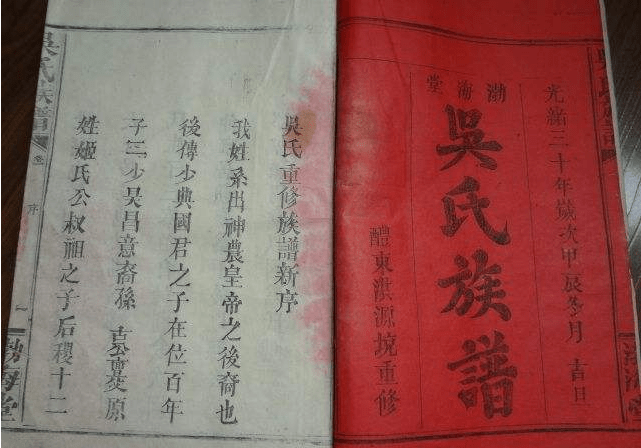 光緒三十年歲次甲辰冬月 吉日
渤海堂
吳氏族譜
醴東洪源境重修
吳氏重修族譜新序
我姓系出神農皇帝之後裔也
後傳少典國君之子在位百年
子三少昊昌意裔孫
原
姓姬氏公叔祖之子后稷十二
吳氏族譜
序
一
渤海堂